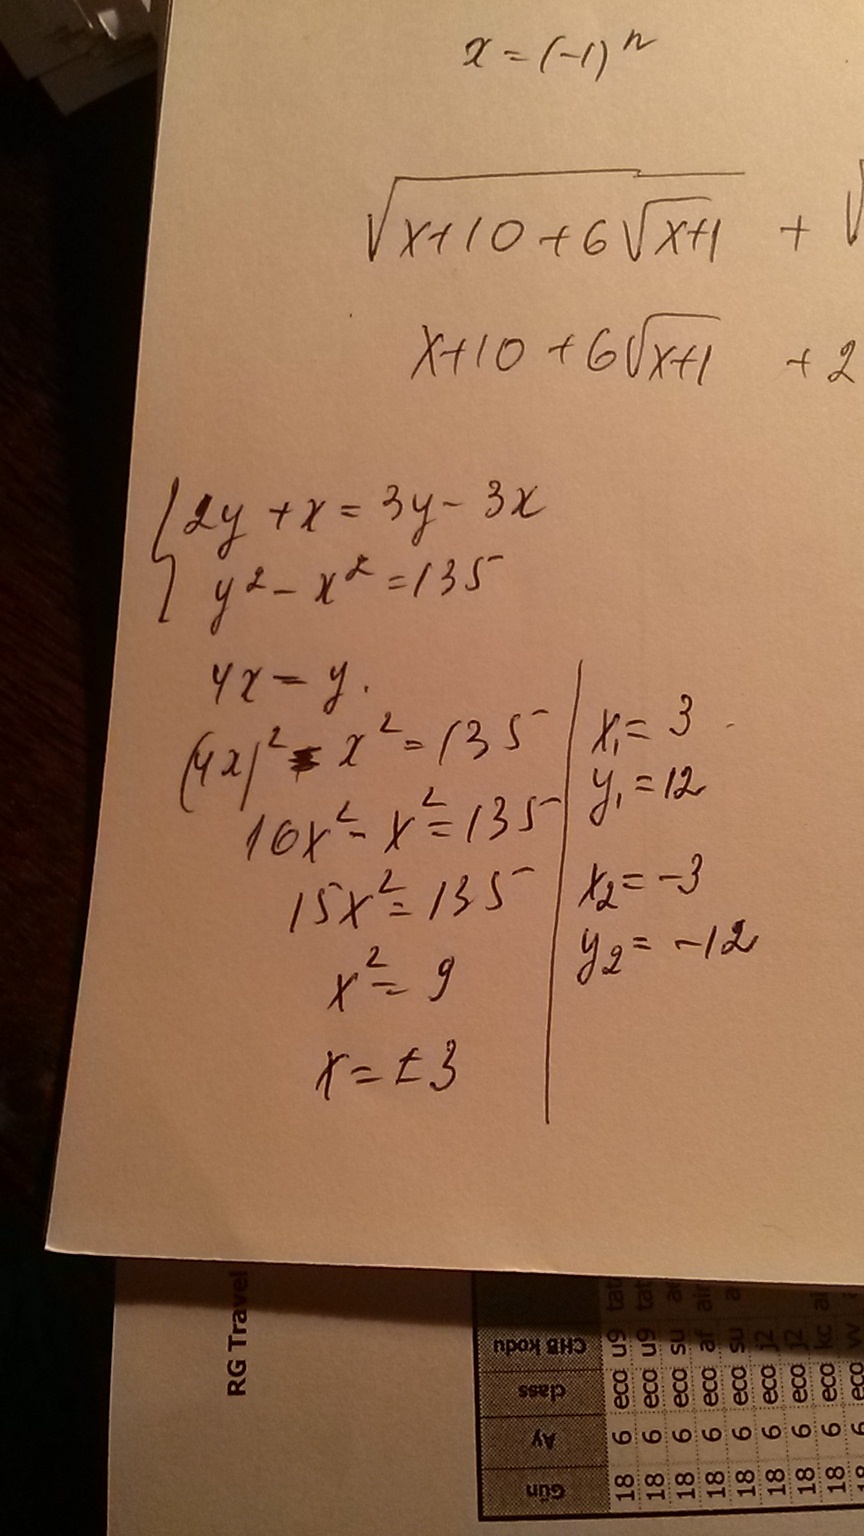 x = (-1)ⁿ
√(x+10 + 6√(x+1)) + √
x+10 + 6√(x+1) + 2
{ 2y + x = 3y - 3x
y² - x² = 135
4x = y.
(4x)² - x² = 135
16x² - x² = 135
15x² = 135
x² = 9
x = ±3
x₁ = 3
y₁ = 12
x₂ = -3
y₂ = -12
RG Travel
Gün Ay class CHB kodu
18 6 eco u9 tat
18 6 eco u9 tat
18 6 eco su
18 6 eco af air
18 6 eco su
18 6 eco j2
18 6 eco j2
18 6 eco kc
18 6 eco vv